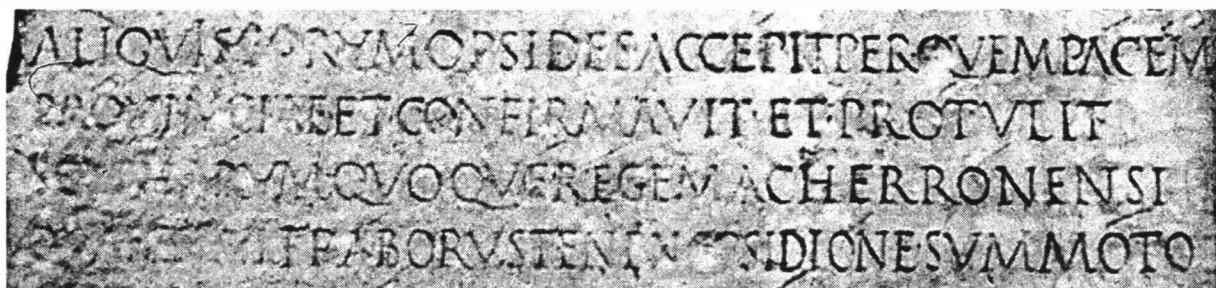 ALIQVIS EORVM OPSIDES ACCEPIT PER QVEM PACEM
PROVINCIAE ET CONFIRMAVIT ET PROTVLIT
QVOQVE REGEM A CHERRONENSI
VLTRA BORVSTENEN OPSIDIONE SVMMOTO